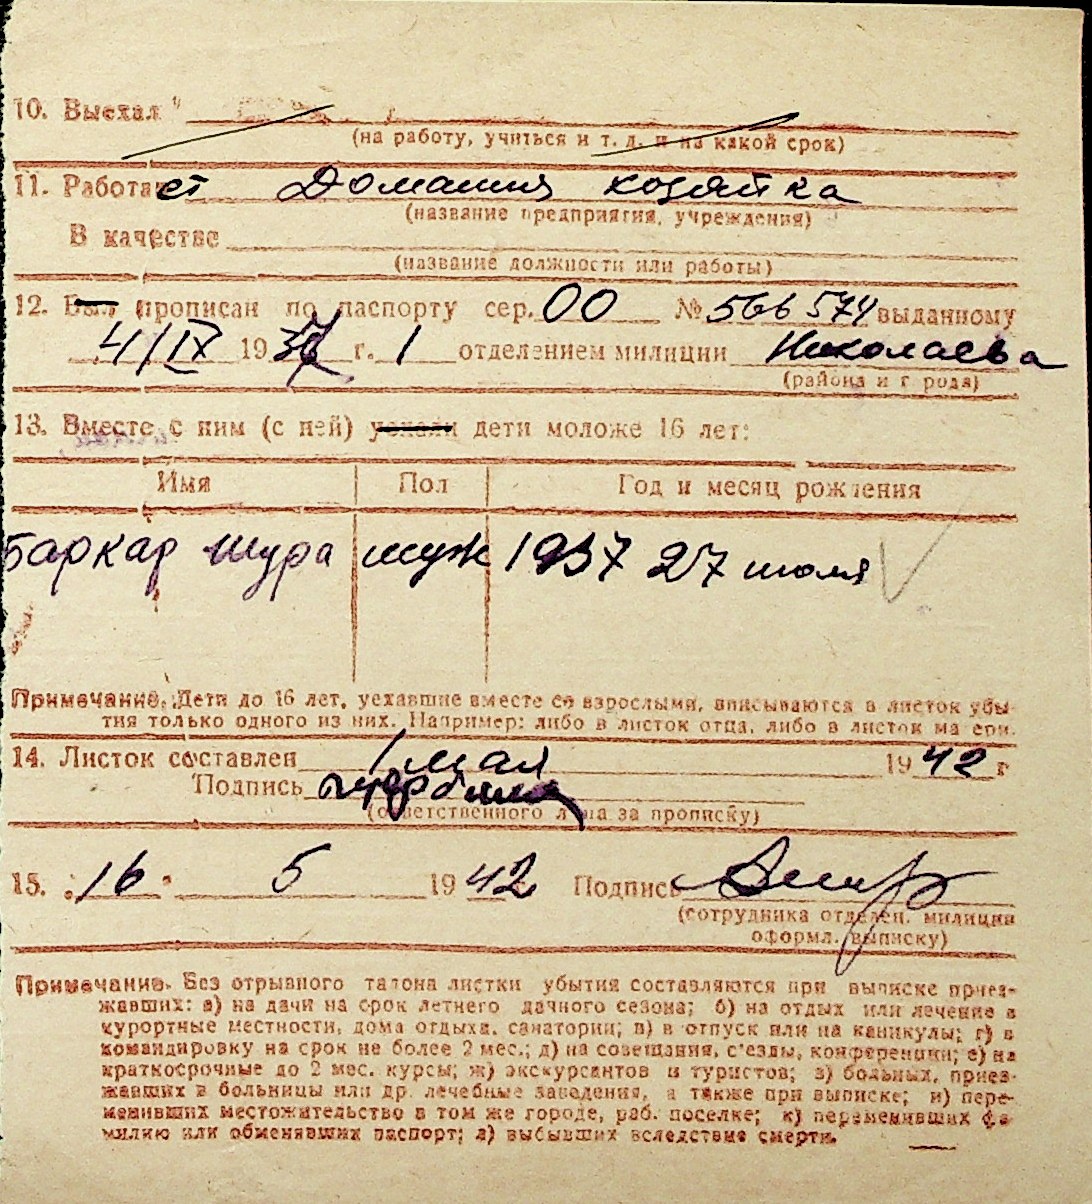 10. Выехал "
(на работу, учиться и т. д. и на какой срок)
11. Работает Домашния хозяйка
(название предприятия, учреждения)
В качестве
(название должности или работы)
12. Был прописан по паспорту сер. ОО № 566574 выданному
4/IX 1937 г. 1 отделением милиции Николаева
(района и города)
13. Вместе с ним (с ней) уехали дети моложе 16 лет:
Имя Пол Год и месяц рождения
Баркар Шура муж 1937 27 июля
Примечание. Дети до 16 лет, уехавшие вместе со взрослыми, вписываются в листок убы-
тия только одного из них. Например: либо в листок отца, либо в листок матери.
14. Листок составлен 1 мая 1942 г
Подпись
(ответственного лица за прописку)
15. "16" 5 1942 Подпись
(сотрудника отделен. милиции
оформл. выписку)
Примечание. Без отрывного талона листки убытия составляются при выписке приез-
жавших: а) на дачи на срок летнего дачного сезона; б) на отдых или лечение в
курортные местности, дома отдыха, санатории; в) в отпуск или на каникулы; г) в
командировку на срок не более 2 мес.; д) на совещания, с'езды, конференции; е) на
краткосрочные до 2 мес. курсы; ж) экскурсантов и туристов; з) больных, приез-
жавших в больницы или др. лечебные заведения, а также при выписке; и) пере-
менивших местожительство в том же городе, раб. поселке; к) переменивших фа-
милию или обменявших паспорт; л) выбывших вследствие смерти.